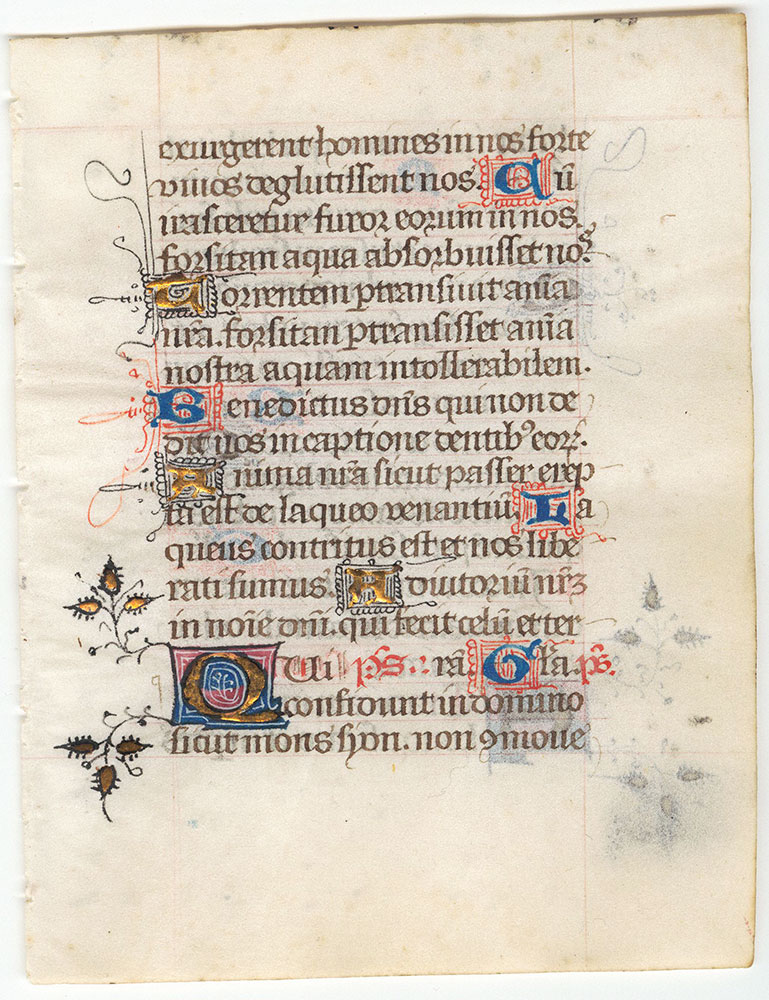 exurgerent homines in nos forte
vivos deglutissent nos. Cū
irasceretur furor eorum in nos.
forsitan aqua absorbuisset nos
Torrentem ꝑtransivit aīa
nr̄a. forsitan ꝑtransisset aīa
nostra aquam intollerabilem.
Benedictus dn̄s qui non de
dit nos in captione dentibꝰ eoꝝ.
Anima nr̄a sicut passer erep
ta est de laqueo venantiū. La
queus contritus est et nos libe
rati sumus. Adiutoriū nr̄ʒ
in noīe dn̄i. qui fecit celū et ter
Qui p̄s. rā. Glīa. p̄s.
confidunt in domino
sicut mons syon. non ꝯmove